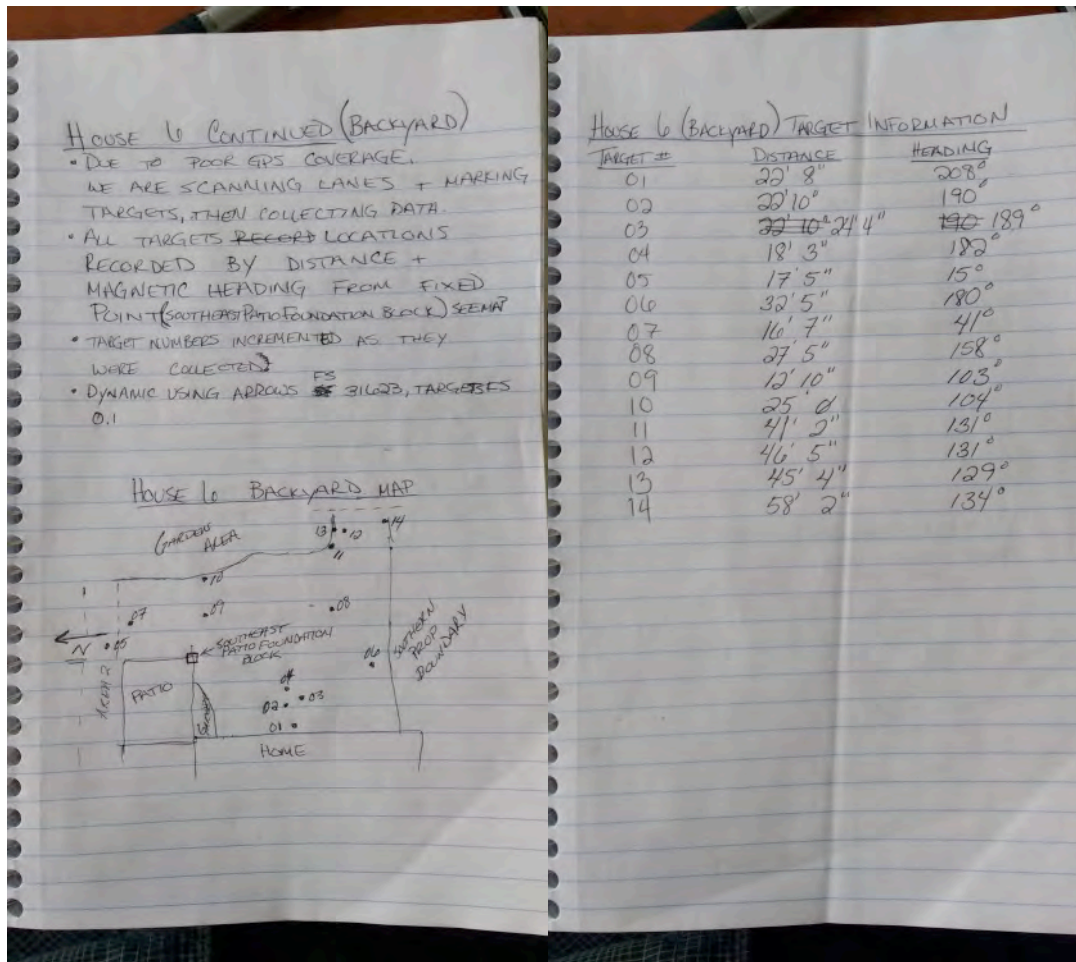 HOUSE 6 CONTINUED (BACKYARD)
• DUE TO POOR GPS COVERAGE.
WE ARE SCANNING LANES + MARKING
TARGETS, THEN COLLECTING DATA.
• ALL TARGETS RECORD LOCATIONS
RECORDED BY DISTANCE +
MAGNETIC HEADING FROM FIXED
POINT (SOUTHEAST PATIO FOUNDATION BLOCK) SEE MAP
• TARGET NUMBERS INCREMENTED AS THEY
WERE COLLECTED
FS
• DYNAMIC USING ARROWS 31623, TARGETS FS
0.1
HOUSE 6 BACKYARD MAP
GARDEN
AREA
13 12 14
11
10
07 09 08
N 05
SOUTHEAST
PATIO FOUNDATION
BLOCK
06
SOUTHERN
PROP
BOUNDARY
AREA 2
PATIO
04
02 03
01
HOME
HOUSE 6 (BACKYARD) TARGET INFORMATION
TARGET # DISTANCE HEADING
01 22' 8" 208°
02 22' 10" 190°
03 22' 10" 24' 4" 190 189°
04 18' 3" 182°
05 17' 5" 15°
06 32' 5" 180°
07 16' 7" 41°
08 27' 5" 158°
09 12' 10" 103°
10 25' 0 104°
11 41' 2" 131°
12 46' 5" 131°
13 45' 4" 129°
14 58' 2" 134°